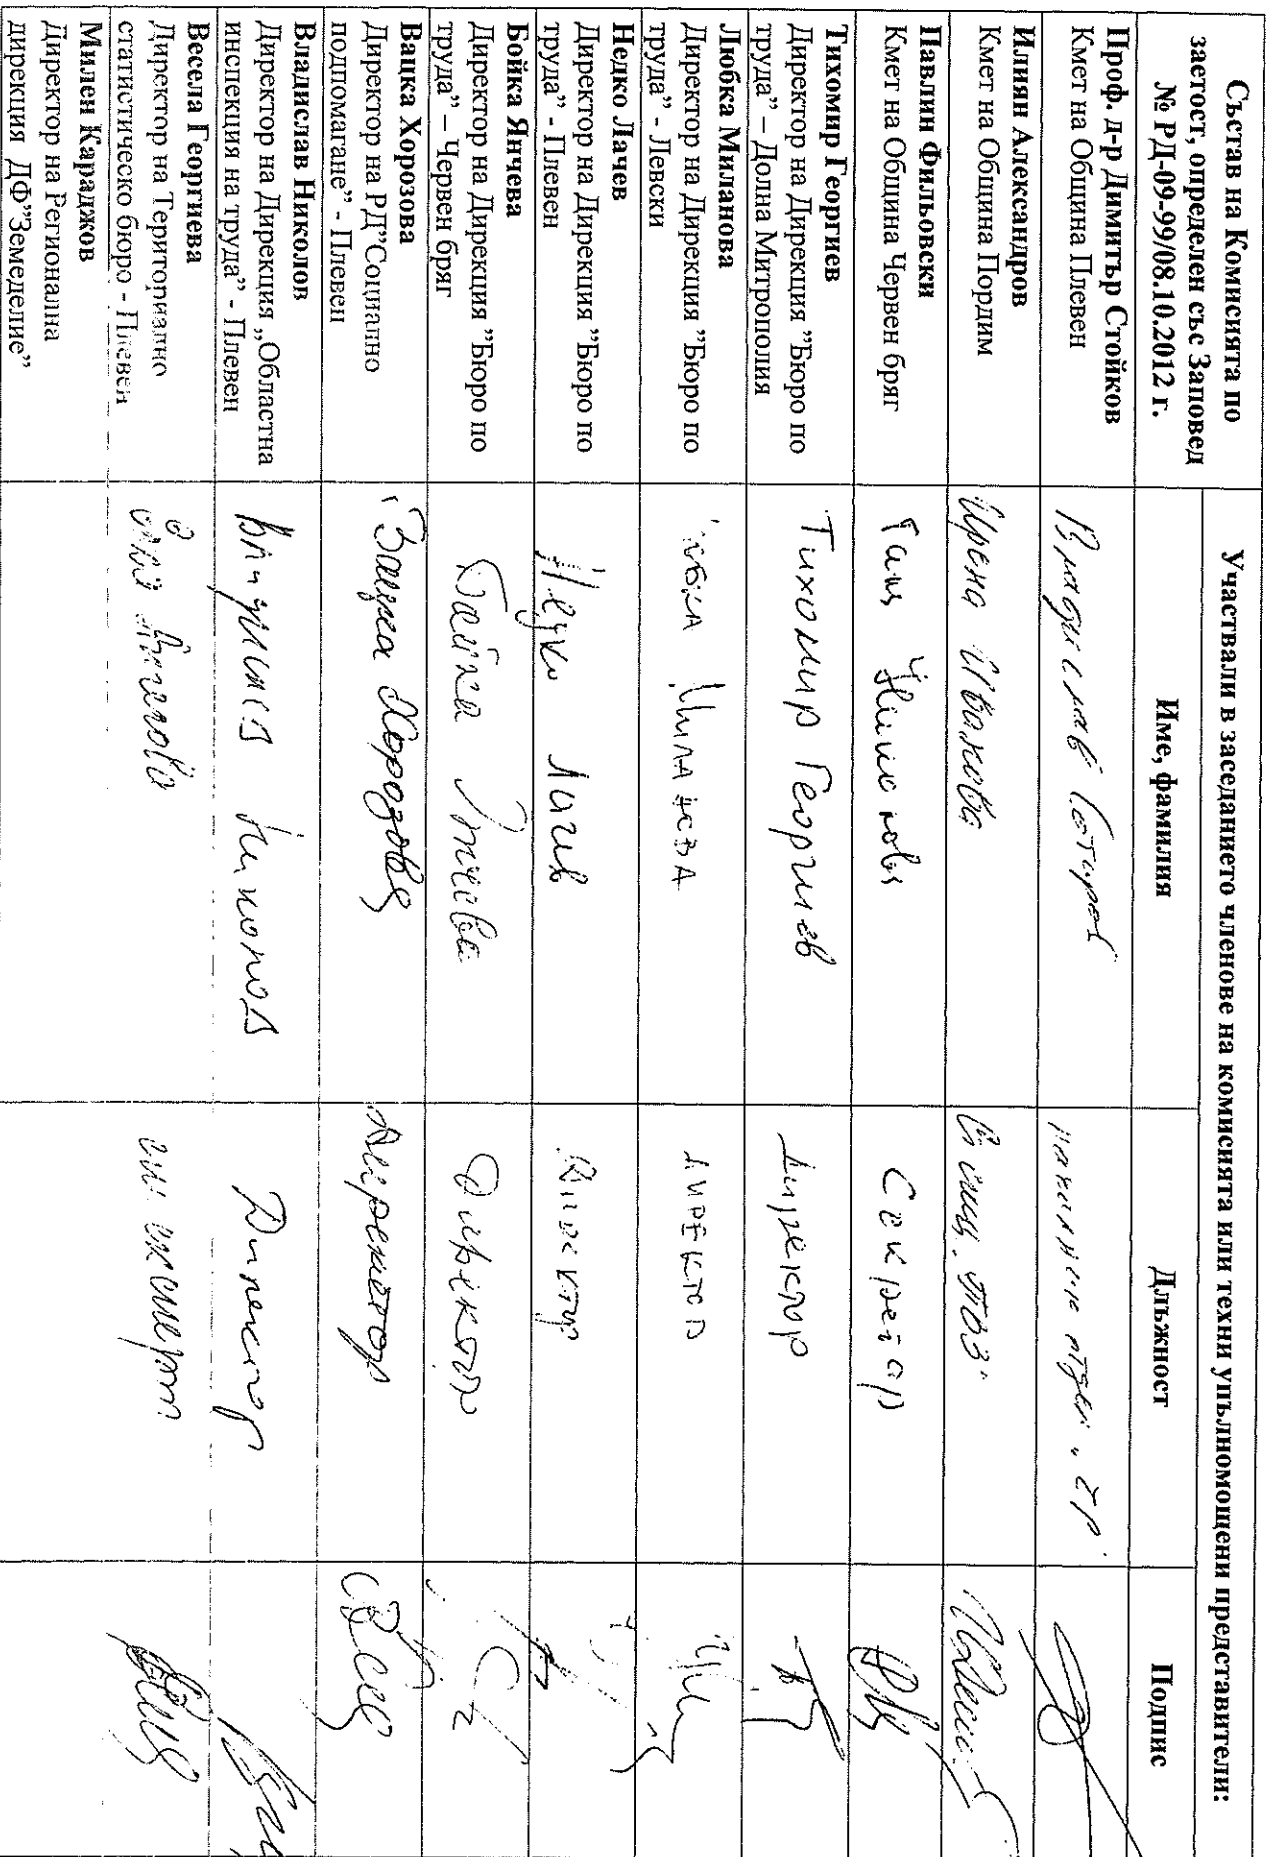 Състав на Комисията по
заетост, определен със Заповед
№ РД-09-99/08.10.2012 г.
Участвали в заседанието членове на комисията или техни упълномощени представители:
Име, фамилия
Длъжност
Подпис
Проф. д-р Димитър Стойков
Кмет на Община Плевен
Владислав
Илиян Александров
Кмет на Община Пордим
Ирена Иванова
Павлин Фильовски
Кмет на Община Червен бряг
Секретар
Тихомир Георгиев
Директор на Дирекция ”Бюро по
труда” – Долна Митрополия
Тихомир Георгиев
Директор
Любка Миланова
Директор на Дирекция ”Бюро по
труда” - Левски
Миланова
Директор
Недко Лачев
Директор на Дирекция ”Бюро по
труда” - Плевен
Недко Лачев
Директор
Бойка Янчева
Директор на Дирекция ”Бюро по
труда” – Червен бряг
Бойка Янчева
Директор
Вацка Хорозова
Директор на РД”Социално
подпомагане” - Плевен
Вацка Хорозова
Директор
Владислав Николов
Директор на Дирекция „Областна
инспекция на труда” - Плевен
Владислав Николов
Директор
Весела Георгиева
Директор на Териториално
статистическо бюро - Плевен
експерт
Милен Караджов
Директор на Регионална
дирекция ДФ”Земеделие”